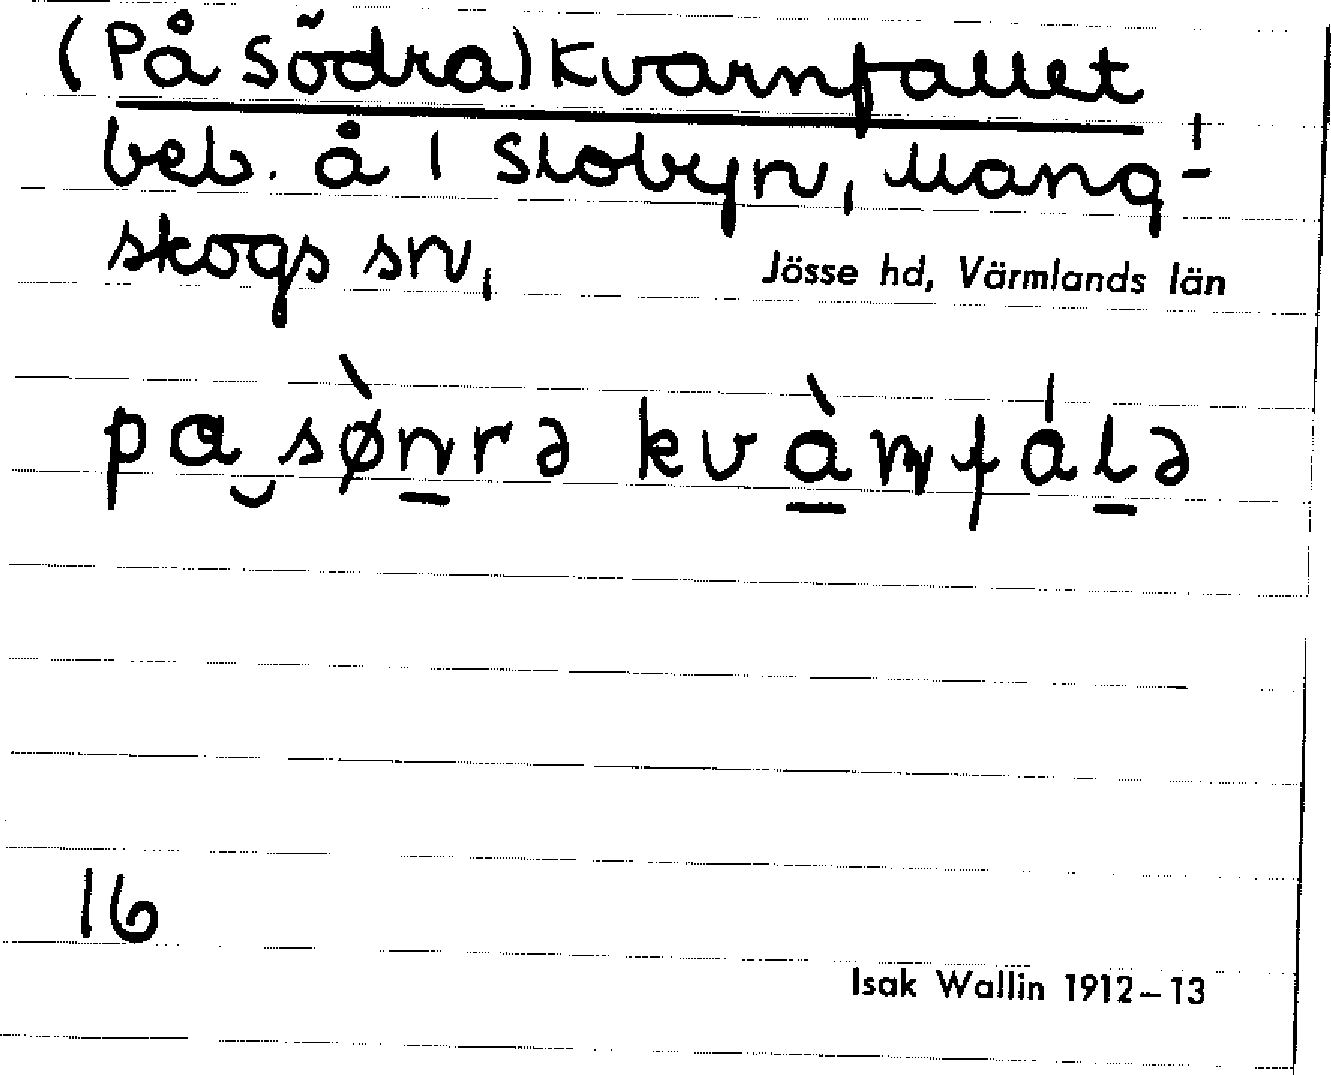 (På Södra) Kvarnfallet
beb. å 1 Slobyn, Mang-
skogs sn,
Jösse hd, Värmlands län
pa sø̀nrə kvànfálə
16
Isak Wallin 1912–13